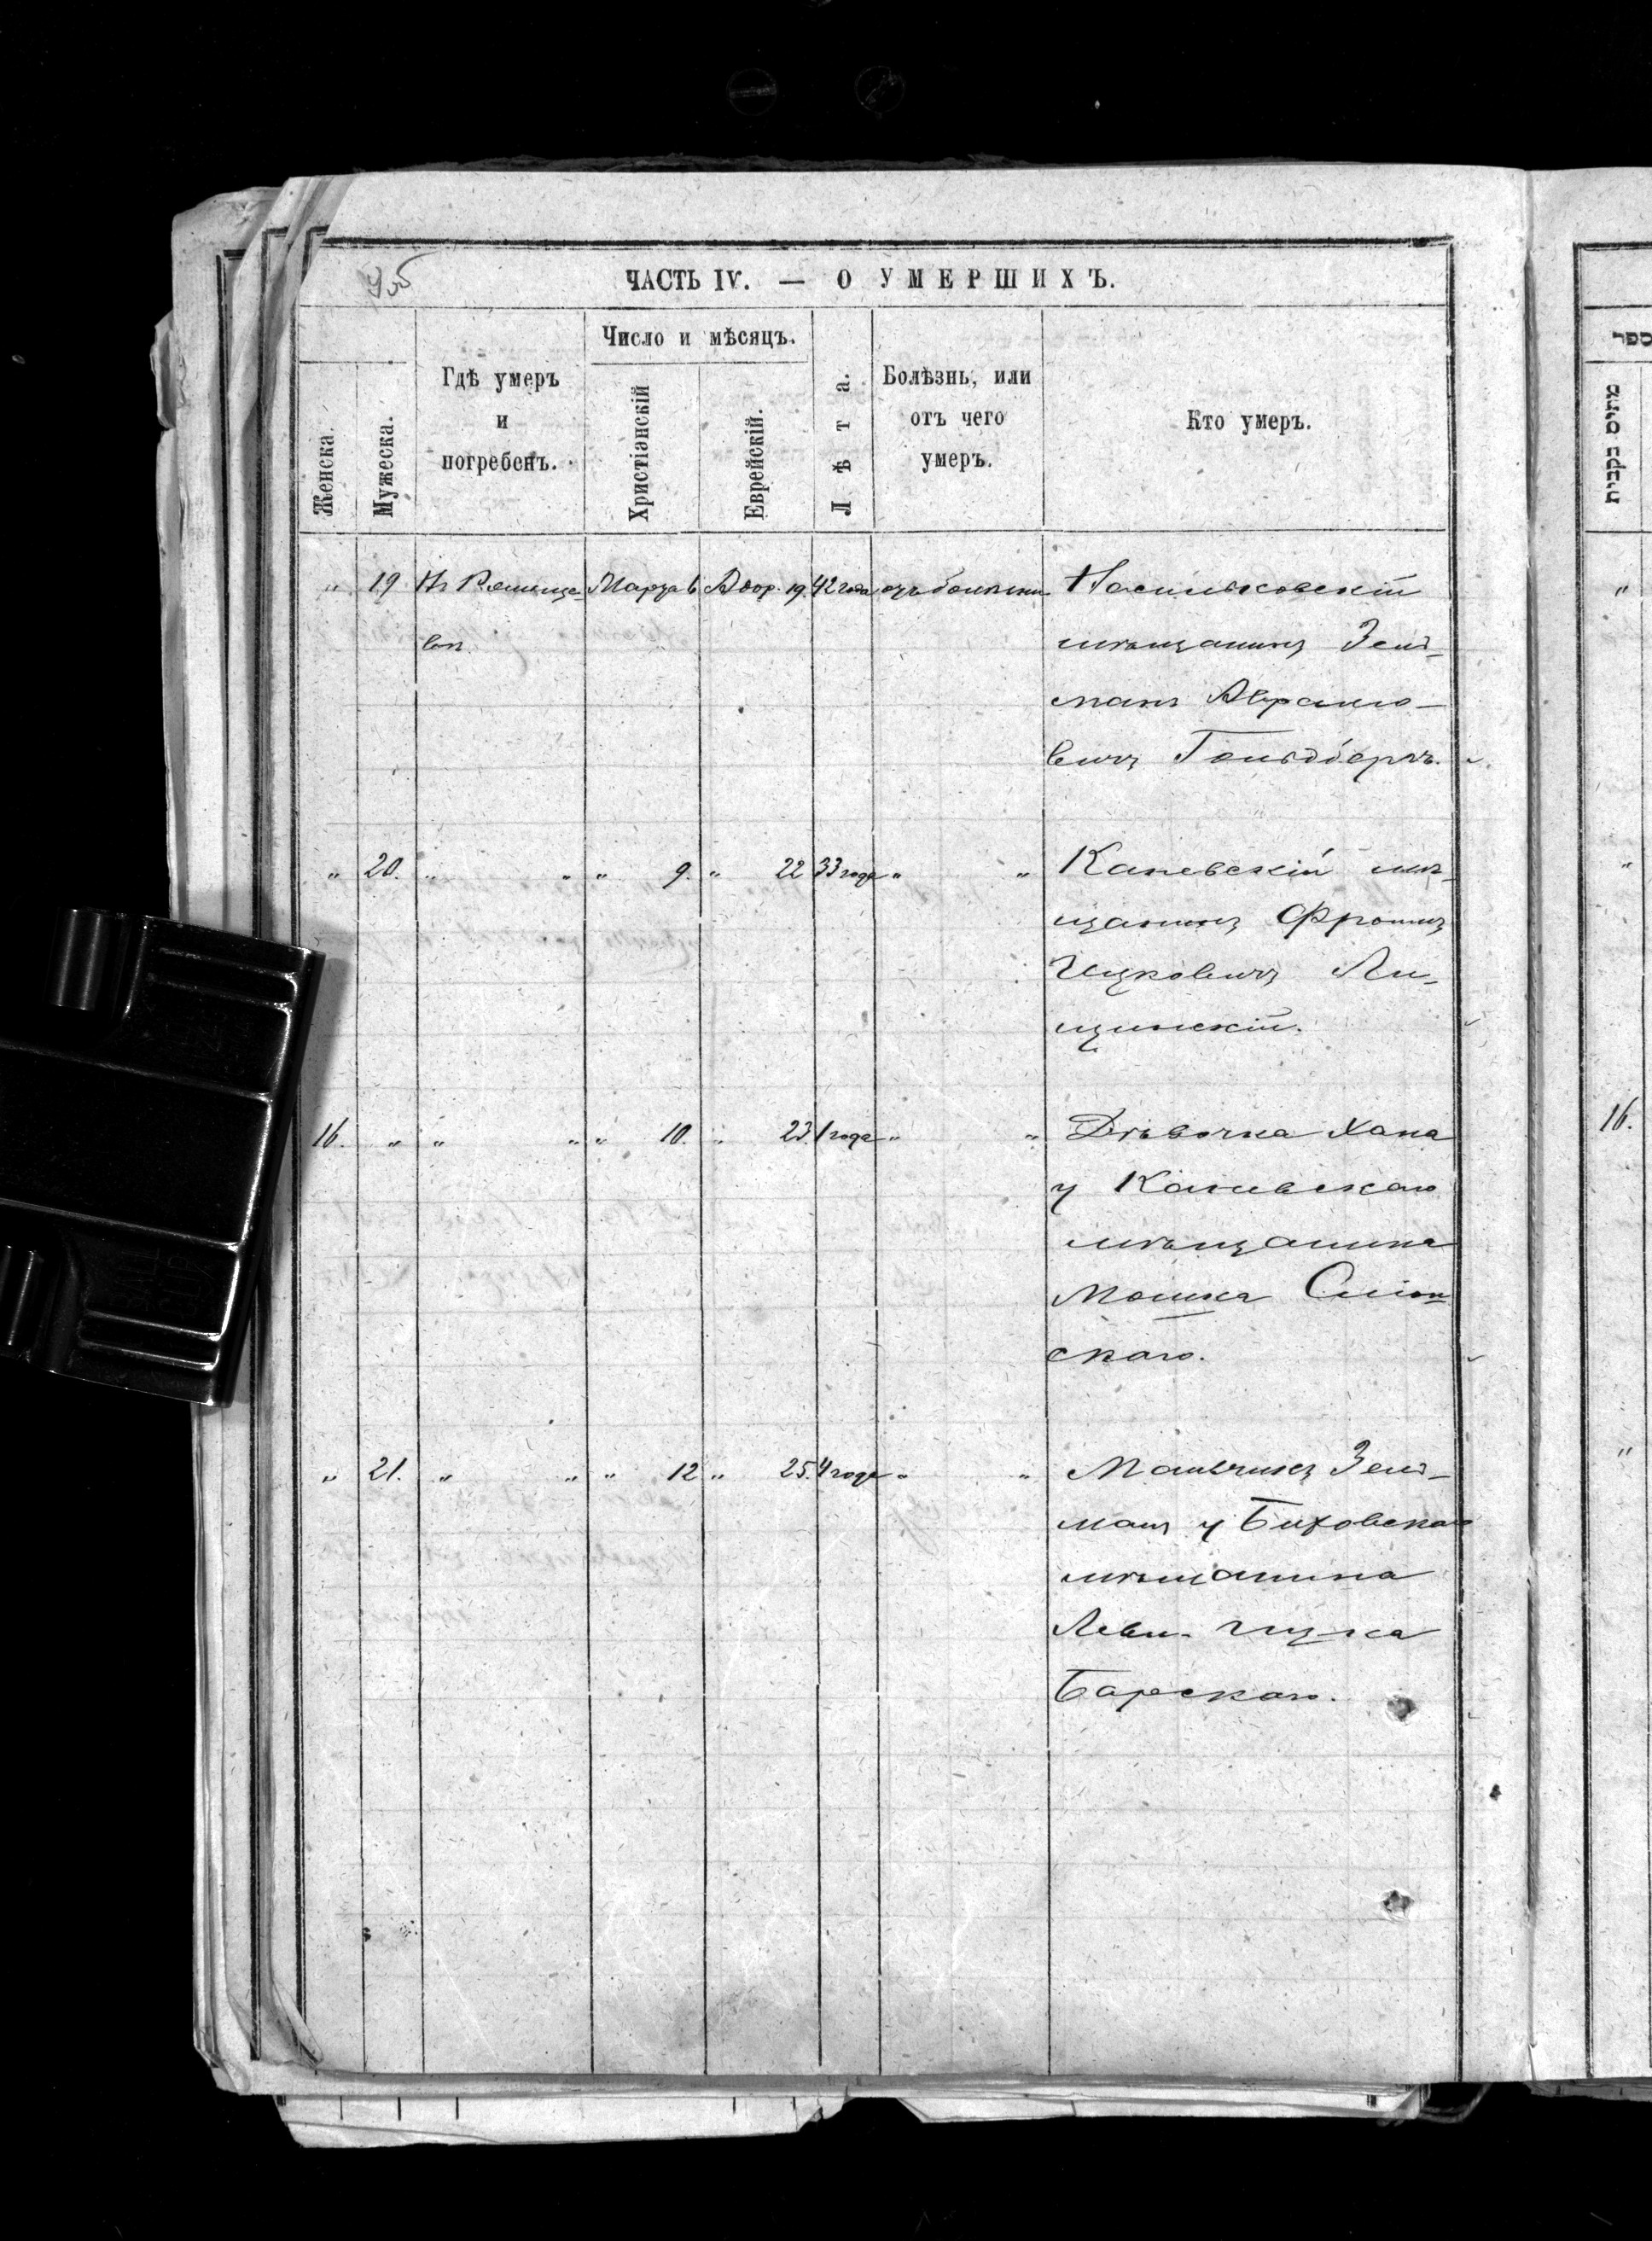 ЧАСТЬ IV. — О УМЕРШИХЪ.
Женска.
Мужеска.
Гдѣ умеръ
и
погребенъ.
Число и мѣсяцъ.
Христіанскій
Еврейскій.
Лѣта.
Болѣзнь, или
отъ чего
умеръ.
Кто умеръ.
" 19 Марта 6 Адор. 19. 42 года
мѣщанинъ Зель-
манъ Аврамо-
вичъ Гольдбергъ.
" 20. " " " 9. " 22 33 года " " Каневскій мѣ-
щанинъ Фроимъ
Ицковичъ Ли-
щинскій.
16. " " " " 10. " 23. 1 года " " Дѣвочка Хана
у Каневскаго
мѣщанина
Мошка
скаго.
" 21. " " " 12 " 25. 4 года " " Мальчикъ Зель-
манъ у
мѣщанина
Леви-Ицка
Барскаго.
ספר
16.